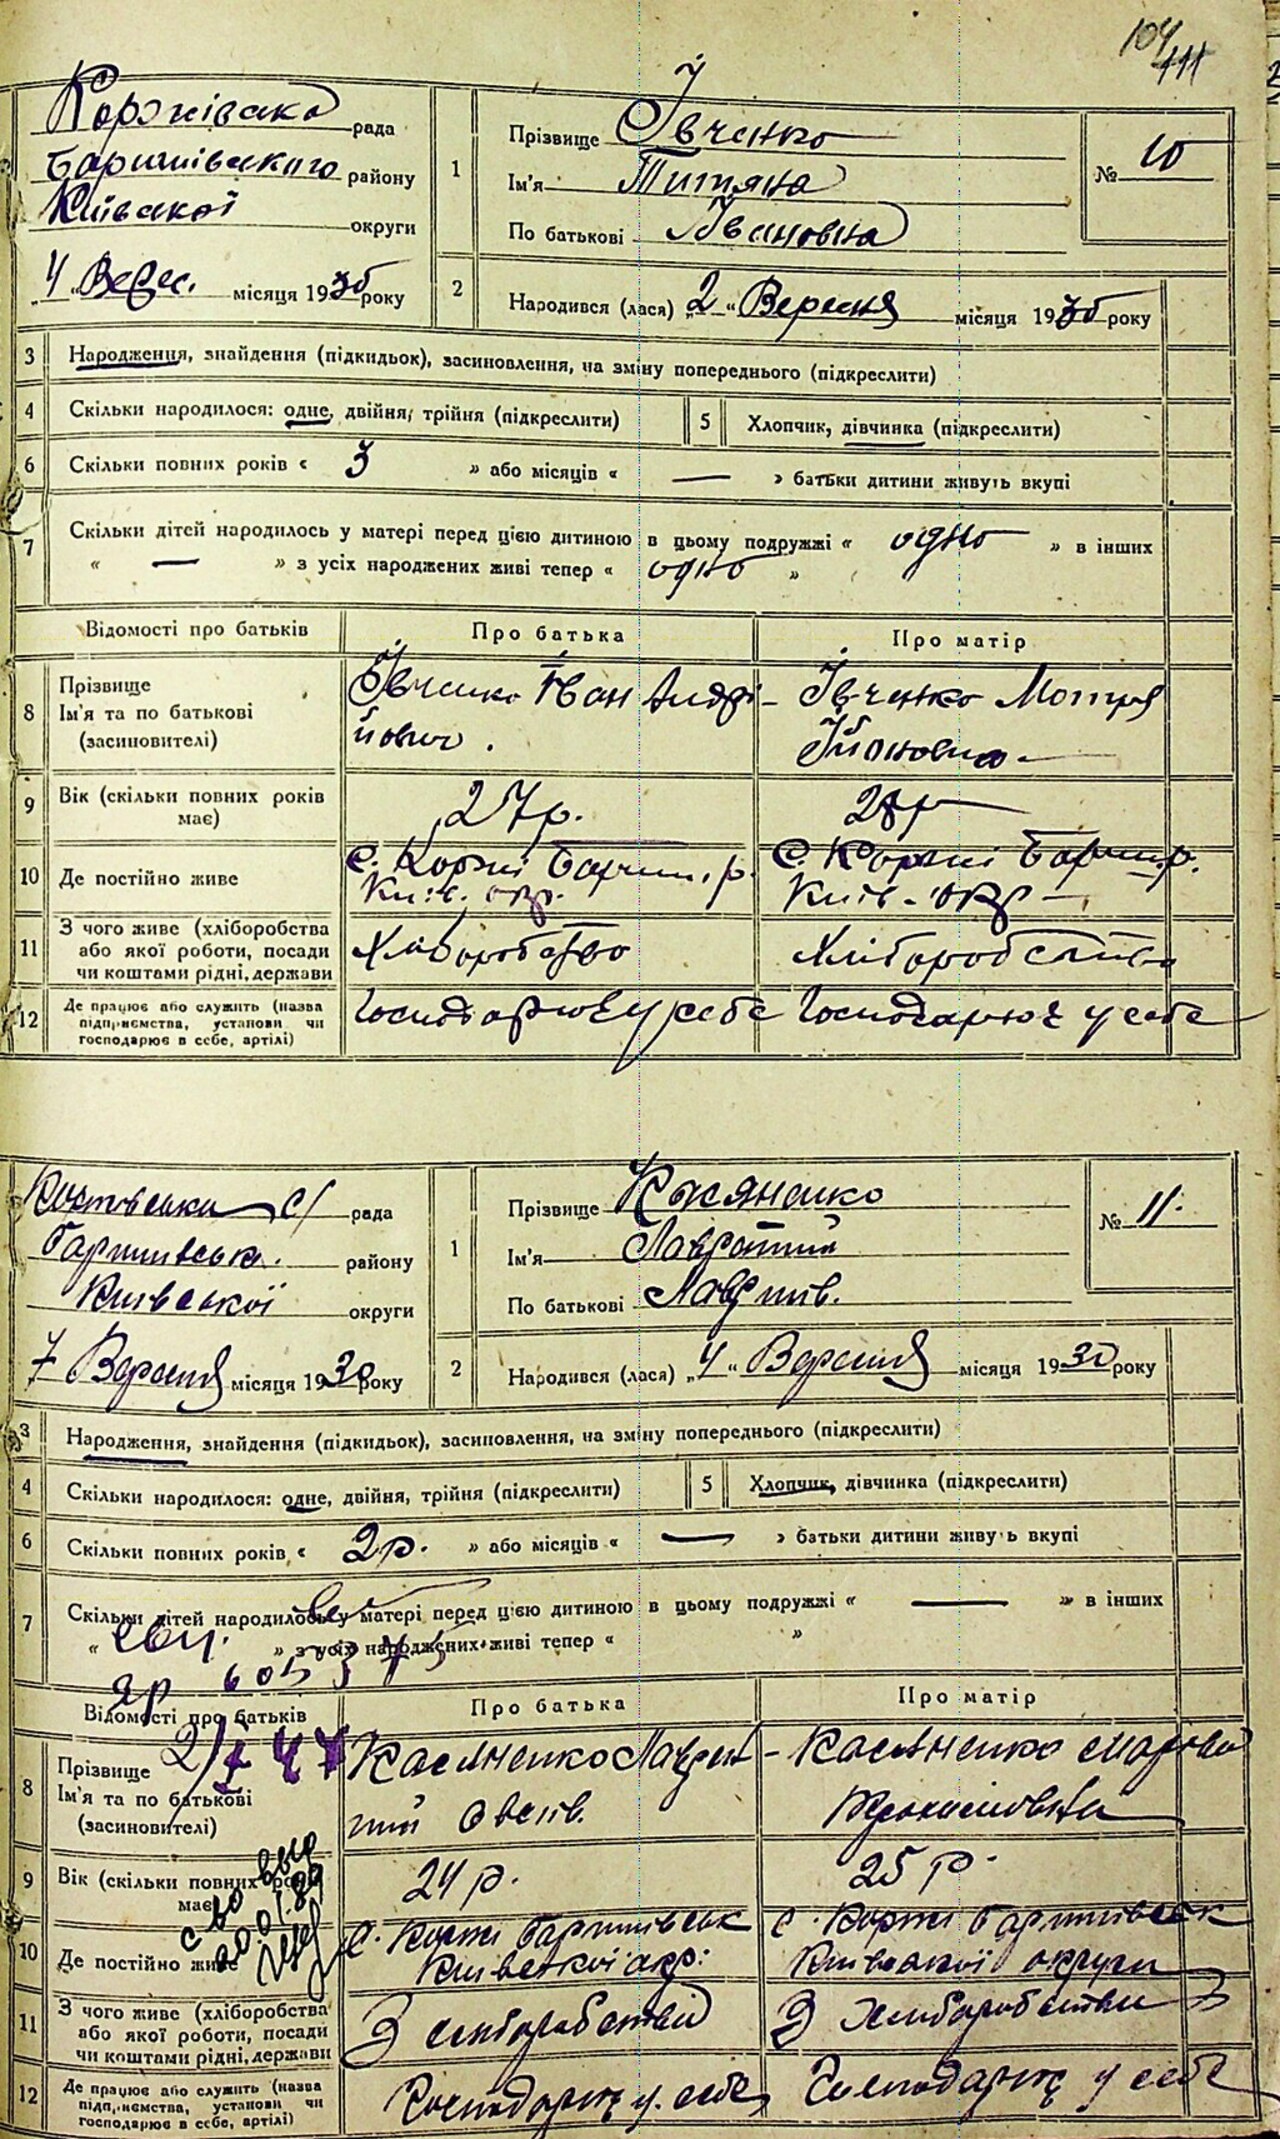 104
111
Коржівська рада
Баришівського району
Київської округи
„4“ Верес. місяця 1930 року
1
Прізвище Івченко
Ім'я Титяна
По батькові Івановна
№ 10
2
Народився (лася) „2“ Вересня місяця 1930 року
3 Народження, знайдення (підкидьок), засиновлення, на зміну попереднього (підкреслити)
4 Скільки народилося: одне, двійня, трійня (підкреслити) 5 Хлопчик, дівчинка (підкреслити)
6 Скільки повних років « 3 » або місяців « — » батьки дитини живуть вкупі
7 Скільки дітей народилось у матері перед цією дитиною в цьому подружжі « одно » в інших
« — » з усіх народжених живі тепер « одно »
Відомості про батьків Про батька Про матір
8 Прізвище Ім'я та по батькові (засиновителі)
Івченко Іван Андрі-
йович.
Івченко Мотря
9 Вік (скільки повних років має) 27р.
10 Де постійно живе
с. Коржі Бариш. р.
Київ. окр.
с. Коржі Бариш. р.
Київ. окр —
11 З чого живе (хліборобства або якої роботи, посади чи коштами рідні, держави
Хліборобство
Хліборобства
12 Де працює або служить (назва підприємства, установи чи господарює в себе, артілі)
Господарює у себе Господарює у себе
рада
Баришівськ. району
Київської округи
7 Вересня місяця 1930 року
1
Прізвище Касяненко
Ім'я Лаврентий
По батькові
№ 11.
2
Народився (лася) „4“ Вересня місяця 1930 року
3 Народження, знайдення (підкидьок), засиновлення, на зміну попереднього (підкреслити)
4 Скільки народилося: одне, двійня, трійня (підкреслити) 5 Хлопчик, дівчинка (підкреслити)
6 Скільки повних років « 2р. » або місяців « — » батьки дитини живуть вкупі
7 Скільки дітей народилось у матері перед цією дитиною в цьому подружжі « — » в інших
« » з усіх народжених живі тепер « »
Відомості про батьків Про батька Про матір
8 Прізвище Ім'я та по батькові (засиновителі)
Касяненко Лаврен-
тий
Касяненко
9 Вік (скільки повних років має) 24 р. 25 р.
10 Де постійно живе
с. Коржі Баришівськ
Київської окр.
с. Коржі Баришівськ
Київської округи
11 З чого живе (хліборобства або якої роботи, посади чи коштами рідні, держави
З хліборобства
З хліборобства
12 Де працює або служить (назва підприємства, установи чи господарює в себе, артілі)
Господарює у себе Господарює у себе